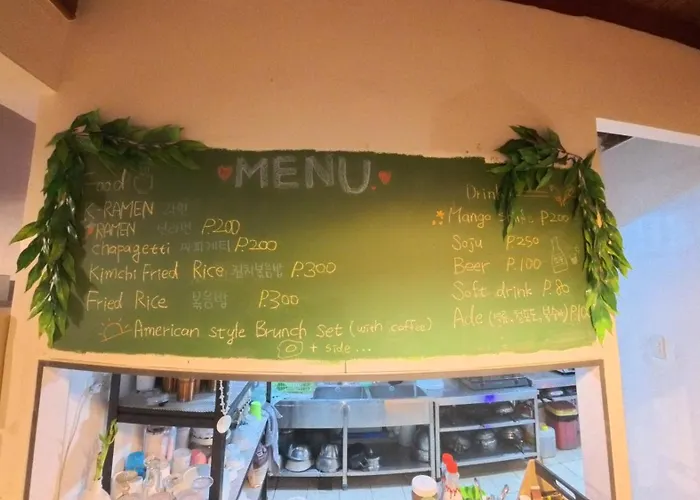 MENU
Food
K-RAMEN 라면
RAMEN P.200
Chapagetti 짜파게티 P.200
Kimchi Fried Rice 김치볶음밥 P.300
Fried Rice 볶음밥 P.300
American style Brunch set (with coffee)
+ side ...
Drink
Mango P.200
Soju P.250
Beer P.100
Soft drink P.80
Ade